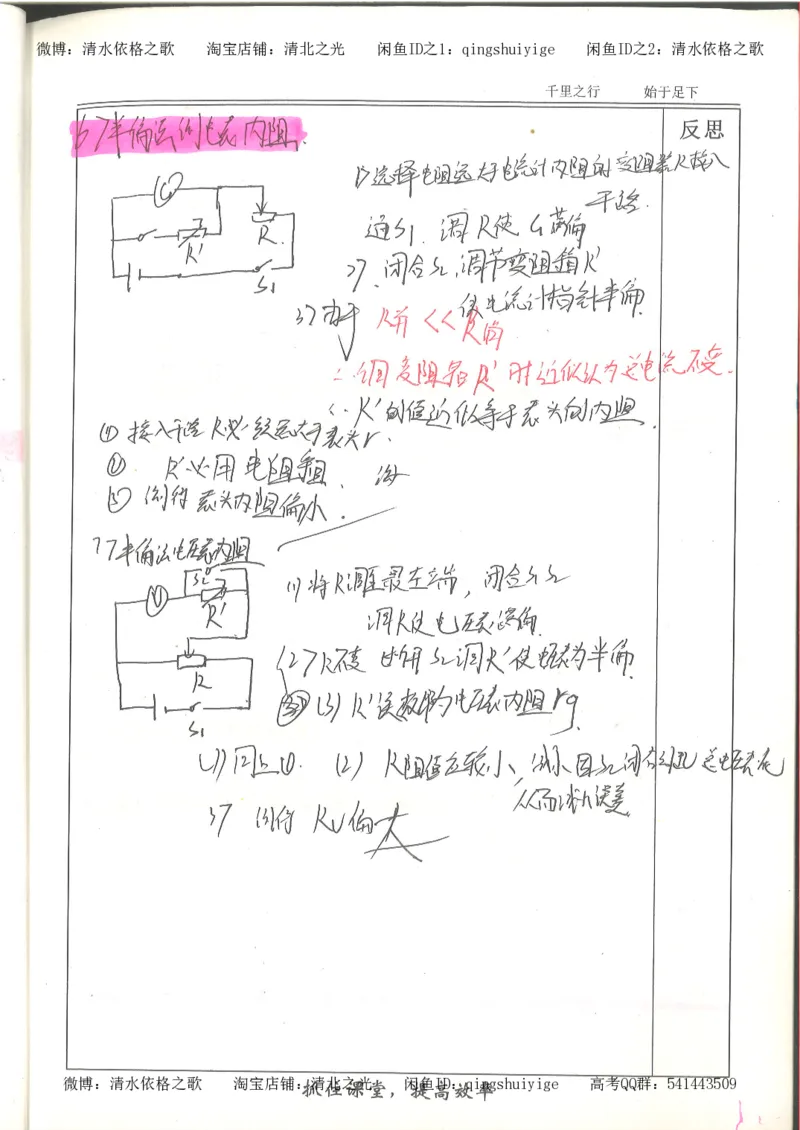 微博：清水依格之歌 淘宝店铺：清北之光 闲鱼ID之1：qingshuiyige 闲鱼ID之2：清水依格之歌
千里之行 始于足下
反思
6>半偏法测电表内阻.
G
R'
R.
S1
1>选择电阻远大于电流计内阻的变阻器R接入
干路.
通S1. 调R使G满偏
2>.闭合S2,调节变阻箱R'
使电流计指针半偏.
3>由于 R并<<R滑
∴调变阻器R'时近似认为总电流不变.
∴R'的值近似等于表头的内阻.
① 接入干路R必须远大于表头r.
② R'必用电阻箱.
③ 测得表头内阻偏小.
7>半偏法电压表内阻
S2
V
R'
R
S1
(1)将R调至最左端,闭合S1 S2
调R使电压表满偏.
(2)R不变 断开S2调R'使电压表为半偏.
(3)R'读数即为电压表内阻rg.
(1)同上①. (2) R阻值应较小,
从而减小误差
3> 测得 RV偏大
微博：清水依格之歌 淘宝店铺：清北之光 闲鱼ID：qingshuiyige 高考QQ群：541443509
抓住课堂，提高效率